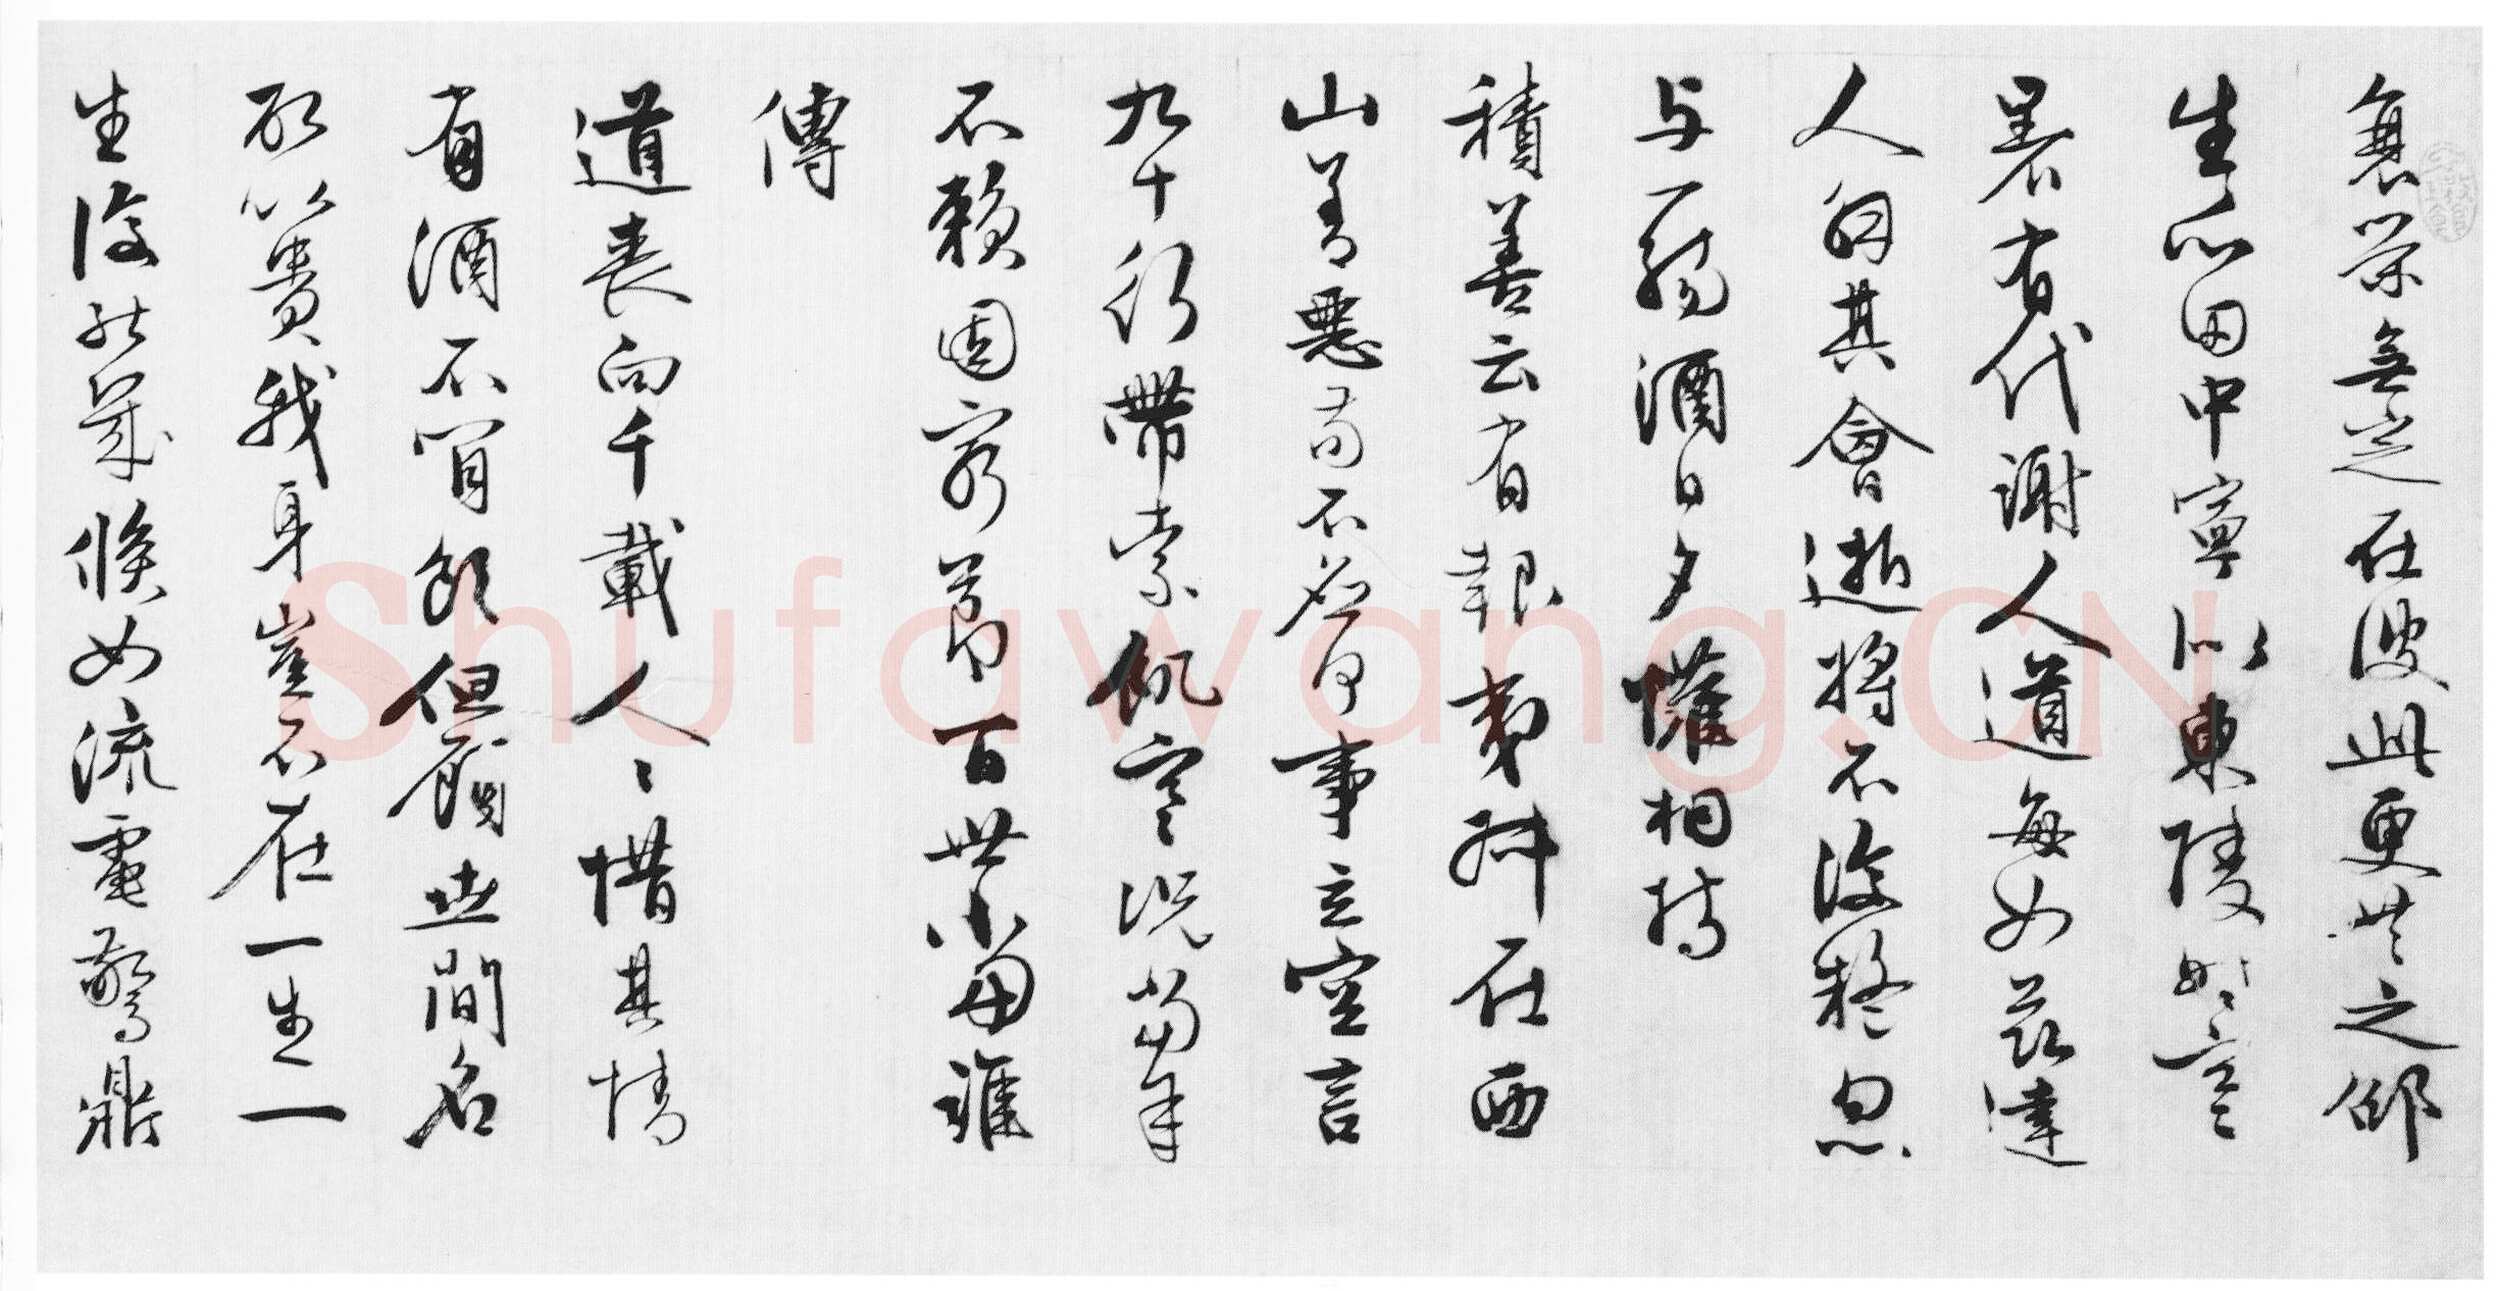 衰榮無定在彼此更共之邵
生瓜田中寧似東陵時寒
暑有代謝人道每如茲達
人解其會逝將不復疑忽
与一觴酒日夕懽相持
積善云有報夷叔在西
山善惡苟不應何事立空言
九十行帶索飢寒況當年
不賴固窮節百世當誰
傳
道喪向千載人々惜其情
有酒不肯飲但顧世間名
所以貴我身豈不在一生一
生復能幾倏如流電驚鼎
Shufawang.CN